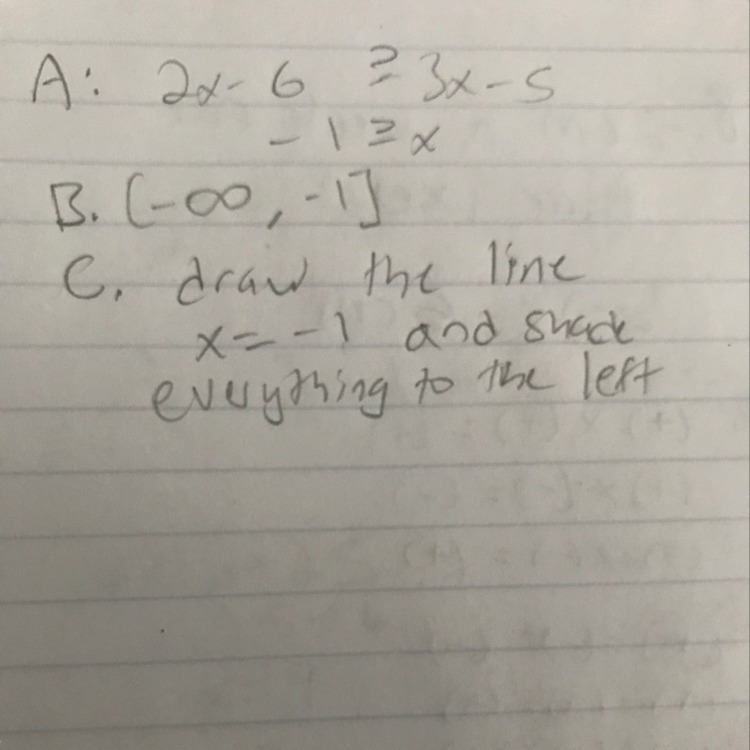 A: 2x - 6 ≥ 3x - 5
- 1 ≥ x
B. (-∞, -1]
C. draw the line
x = -1 and shade
everything to the left